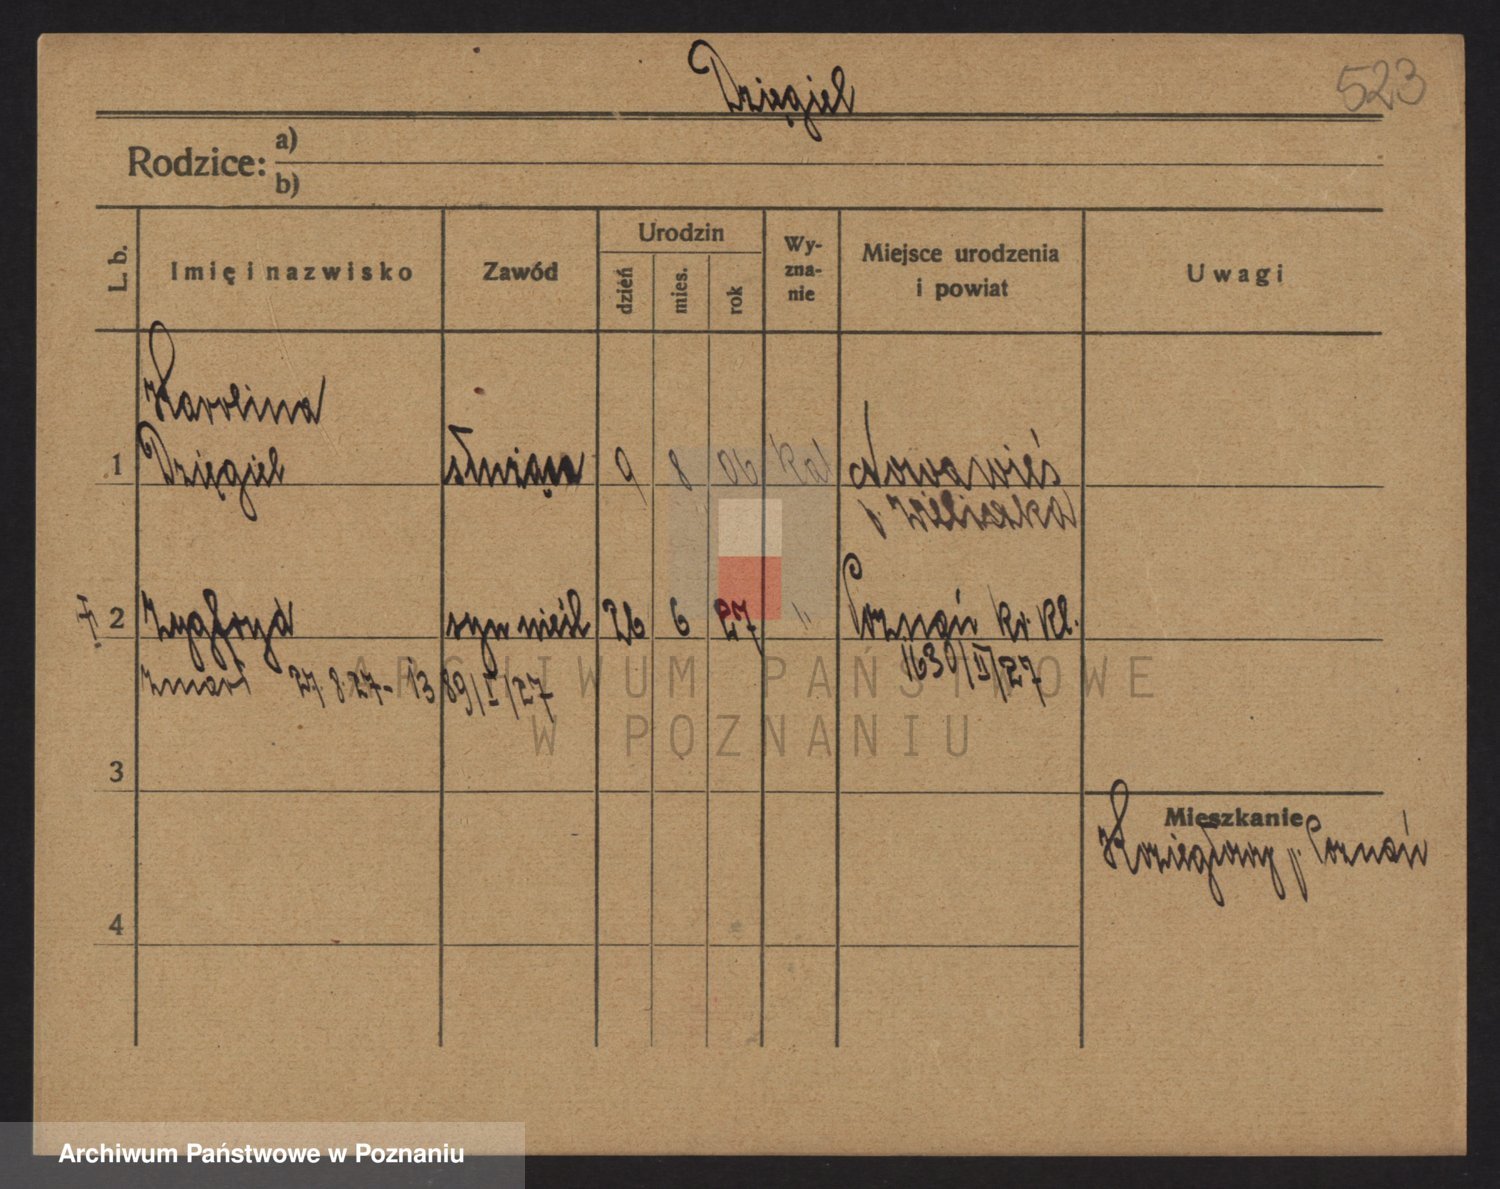 Dzięgiel
523
Rodzice: a)
b)
L. b.
Imię i nazwisko
Zawód
Urodzin
dzień
mies.
rok
Wy-
zna-
nie
Miejsce urodzenia
i powiat
Uwagi
Karolina
1 Dzięgiel służąca 9 8 06 kat Nowawieś
p. Wieliczka
2 Zygfryd syn nieśl 26 6 27 " Poznań kr. Kl.
1630/II/27
zmarł 27.8.27 - 1389/I/27
3
Mieszkanie
Koziegłowy p. Poznań
4
ARCHIWUM PAŃSTWOWE
W POZNANIU
Archiwum Państwowe w Poznaniu